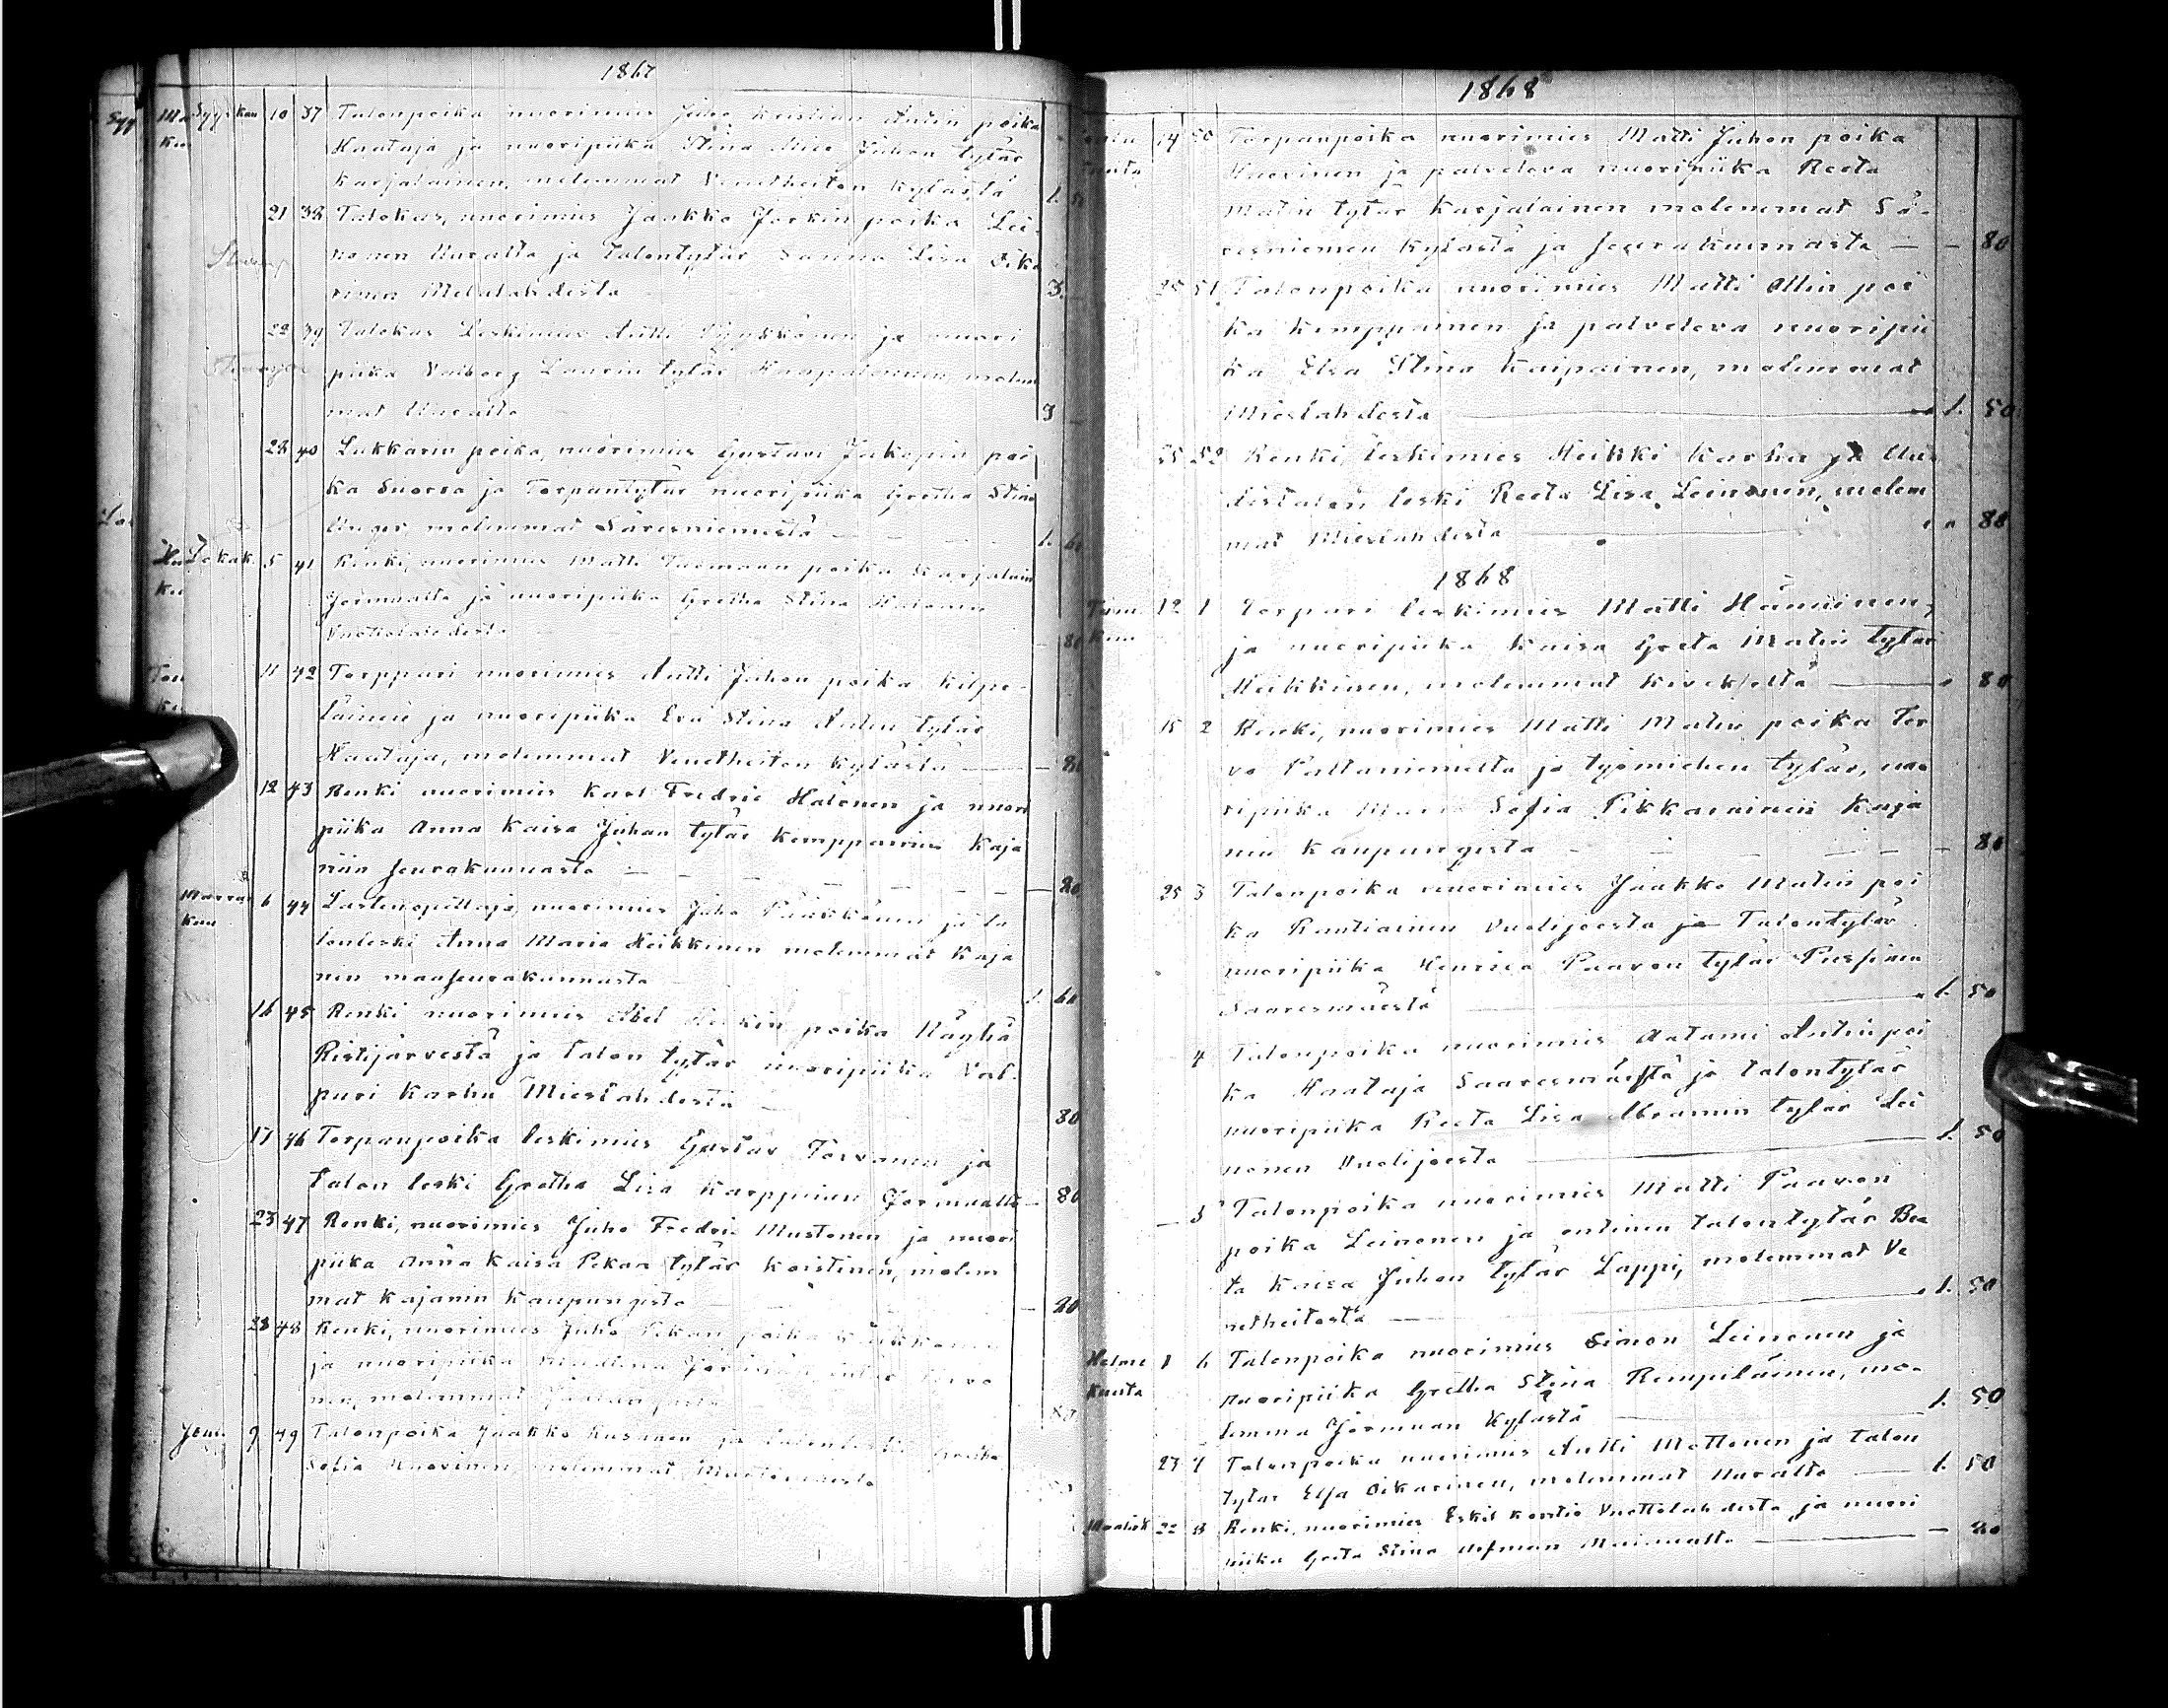 1867
Syyskuu 10 37 Talonpoika nuorimies Juho Kristian Antin poika
Haataja ja nuoripiika Stina Juhon tytär
Karjalainen, molemmat Venetheiton kylästä 1.
21 38 Talokas, nuorimies Jaakko Jerkin poika Lei-
nonen Uuralta ja talontytär Sanna Lisa Oika
rinen Melalahdesta 3. —
22 39 Talokas Leskimies Antti Pyykkönen ja nuori
piika Valborg Laurin tytär Haapalainen, molem
mat Uuralta 3 —
28 40 Lukkarin poika, nuorimies Gustavi Jakopin poi
ka Suorsa ja Torpantytär nuoripiika Gretha Stina
Unger, molemmat Säresniemestä 1. 60
Lokak. 5 41 Renki, nuorimies Matti Tuomaan poika Karjalain
Jormualta ja nuoripiika Gretha Stina
Vuottolahdesta — 80
11 42 Torppari nuorimies Antti Juhon poika Kilpe-
läinen ja nuoripiika Eva Stina Antin tytär
Haataja, molemmat Venetheiton kylästä — 80
12 43 Renki nuorimies Karl Fredric Halonen ja nuori
piika Anna Kaisa Juhan tytär Kemppainen Kaja
nin seurakunnasta — 80
Marras kuu 6 44 Lastenopettaja, nuorimies Juho Pääkkönen ja ta
lonleski Anna Maria Heikkinen molemmat Kaja
nin maaseurakunnasta 1. 60
16 45 Renki nuorimies Abel Heikin poika Räyhä
Ristijärvestä ja talon tytär nuoripiika Val-
puri Karhu Mieslahdesta 80
17 46 Torpanpoika leskimies Gustav Tervonen ja
talon leski Gretha Lisa Karppinen Jormualta — 80
23 47 Renki, nuorimies Juho Fredri Mustonen ja nuori
piika Anna Kaisa Pekan tytär Koistinen, molem
mat Kajanin Kaupungista — 80
28 48 Renki, nuorimies Juho Pekan poika
ja nuoripiika Tervo
nen, molemmat
Joulu 9 49 Talonpoika Jaakko Kusonen ja talonleski Gretha
Sofia Huovinen, molemmat
1868
14 50 Torpanpoika nuorimies Matti Juhon poika
Huovinen ja palveleva nuoripiika Reeta
Matin tytär Karjalainen molemmat Sä-
resniemen kylästä ja seurakunnasta — — 80
25 51 Talonpoika nuorimies Matti Ollin poi
ka Kemppainen ja palveleva nuoripii
ka Elsa Stina Kaipainen, molemmat
Mieslahdesta 1. 50
25 52 Renki, leskimies Heikki Karhu ja Uu
distalon leski Reeta Lisa Leinonen, molem
mat Mieslahdesta 80
1868
Tam kuu 12 1 Torpari leskimies Matti Hämäinen,
ja nuoripiika Kaisa Greta Matin tytär
Heikkinen, molemmat Kivekseltä 80
15 2 Renki, nuorimies Matti Matin poika Ter
vo Paltaniemeltä ja työmiehen tytär, nuo
ripiika Maria Sofia Pikkarainen Kaja
nin Kaupungista — 80
25 3 Talonpoika nuorimies Jaakko Matin poi
ka Rautiainen Vuolijoesta ja Talontytär
nuoripiika Henrica Paavon tytär
Saaresmäestä 1. 50
4 Talonpoika nuorimies Aatami Antin poi
ka Haataja Saaresmäestä ja talontytär
nuoripiika Reeta Lisa Abramin tytär Lei
nonen Vuolijoesta 1. 50
— 5 Talonpoika nuorimies Matti Paavon
poika Leinonen ja entinen talontytär Bea
ta Kaisa Juhon tytär Lappi, molemmat Ve
netheitosta 1. 50
Helmi kuuta 1 6 Talonpoika nuorimies Simon Leinonen ja
nuoripiika Gretha Stina Rempiläinen, mo-
lemma Jormuan kylästä 1. 50
23 7 Talonpoika nuorimies Antti Mattonen ja talon
tytär Elsa Oikarinen, molemmat Uuralta — 1. 50
Maalisk 22 8 Renki, nuorimies Eskil Kontio Vuottolahdesta ja nuori
piika Greta Stina Mainualta — 80